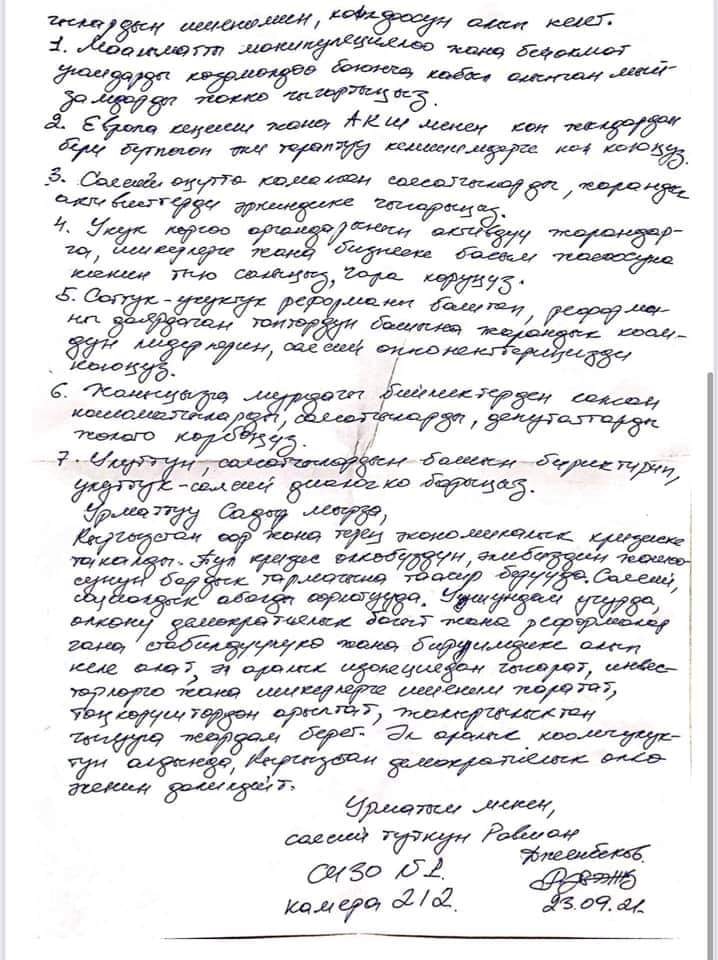 чылардын ишенимин, колдоосун алып келет.
1. Маалыматты манипуляциялоо жана бейөкмөт
уюмдарды көзөмөлдөө боюнча кабыл алынган мый-
замдарды жокко чыгартыңыз.
2. Европа кеңеши жана АКШ менен көп жылдардан
бери бүтпөгөн эки тараптуу келишимдерге кол коюңуз.
3. Саясий өңүттө камалган саясатчыларды, жарандык
активисттерди эркиндикке чыгарыңыз.
4. Укук коргоо органдарынын активдүү жарандар-
га, ишкерлерге жана бизнеске басым жасоосуна
кескин тыю салыңыз, чара көрүңүз.
5. Соттук-укуктук реформаны баштап, реформа-
ны даярдаган топтордун башына жарандык коом-
дун лидерлерин, саясий оппоненттериңизди
коюңуз.
6. Жаныңызга мурдагы бийликтерден калган
кошоматчыларды, саясатчыларды, депутаттарды
жолото көрбөңүз.
7. Улуттун, саясатчылардын башын бириктирип,
улуттук-саясий диалогко барыңыз.
Урматтуу Садыр мырза,
Кыргызстан оор жана терең экономикалык кризиске
такалды. Бул кризис өлкөбүздүн, элибиздин жашоо-
сунун бардык тармагына таасир берүүдө. Саясий,
социалдык абалды оорлотууда. Ушундай учурда,
өлкөнү демократиялык багыт жана реформалар
гана стабилдүүлүккө жана биримдикке алып
келе алат, эл аралык изоляциядан чыгарат, инвес-
торлорго жана ишкерлерге ишеним жаратат,
таңкорушлордон арылтат, жакырчылыктан
чыгууга жардам берет. Эл аралык коомчулук-
тун алдында, Кыргызстан демократиялык өлкө
экенин далилдейт.
Урматым менен,
саясий туткун Равшан
Джеенбеков.
СИЗО №1.
камера 212.
23.09.21.